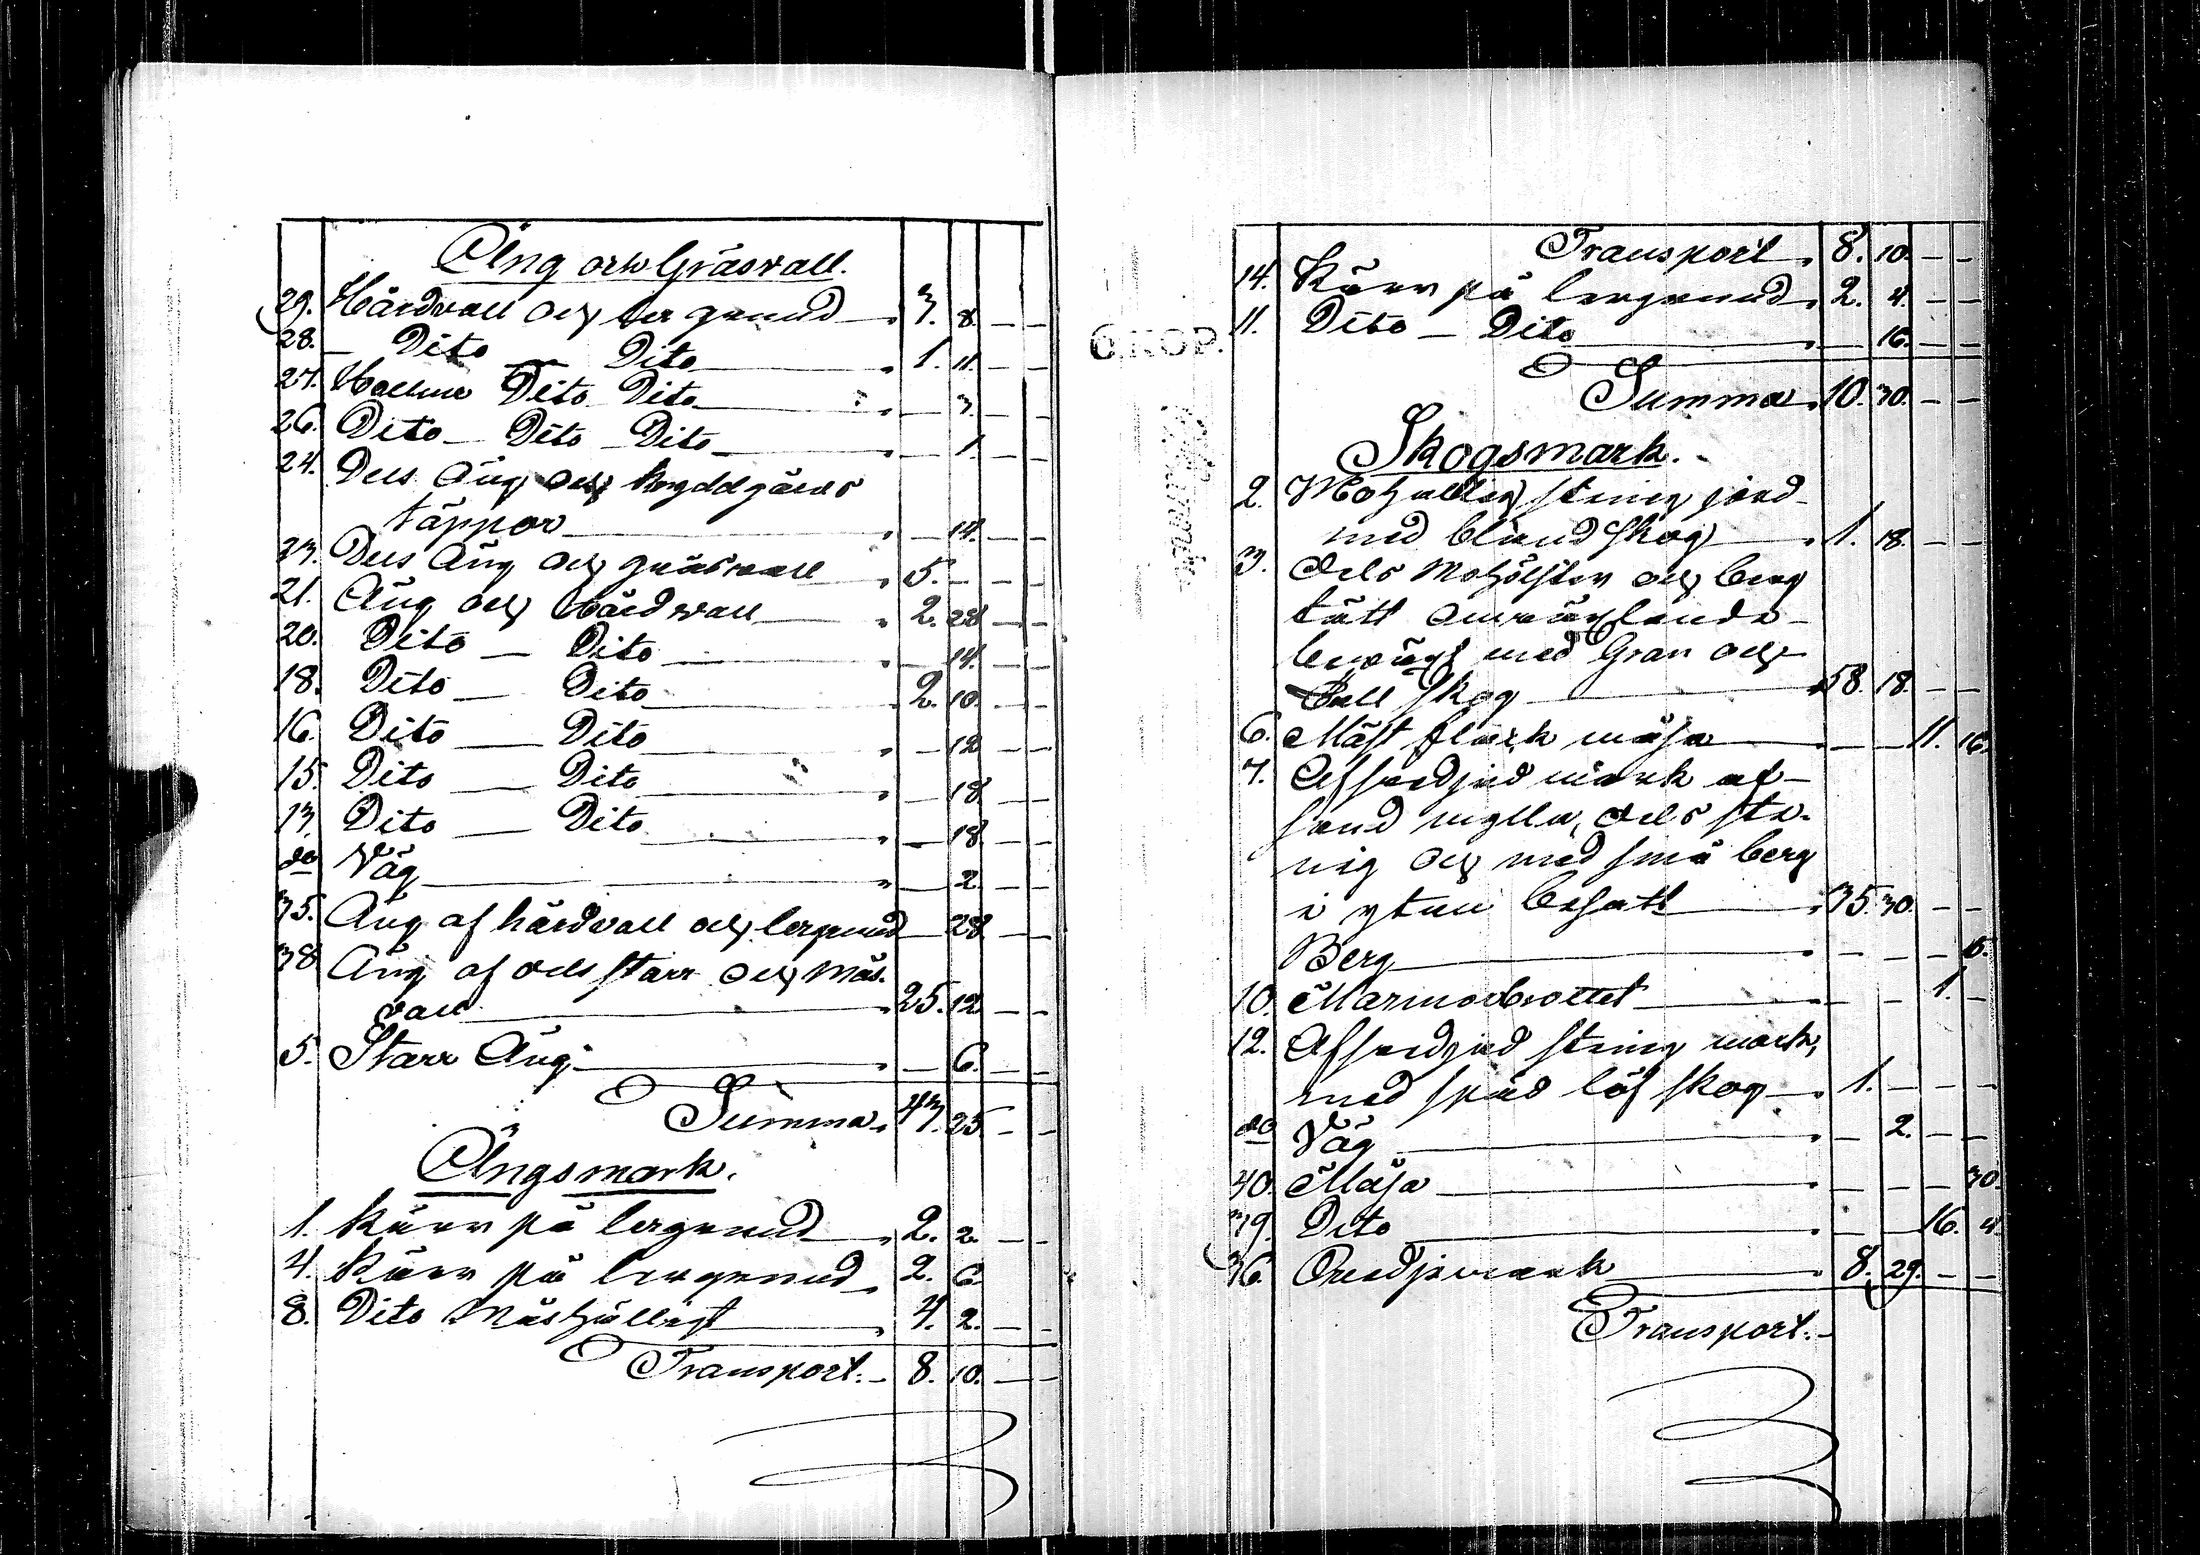 Äng och Gräsvall.
29. Hårdvall och ler grund 3. 8. — —
28. — Dito — Dito 1. 11. — —
27. Dito Dito — 3. — —
26. Dito — Dito — Dito — 1. — —
24. Dels Äng och krydd gårds
täppor — 14. — —
23. Dels Äng och gräsvall 5. — — —
21. Äng och hårdvall 2. 28 — —
20. Dito — Dito — 14. — —
18. Dito — Dito 2. 10. — —
16. Dito — Dito — 12 — —
15. Dito — Dito — 18 — —
13. Dito — Dito — 18. — —
do Väg — 2. — —
35. Äng af hårdvall och lergrund — 28 — —
38 Äng af dels starr och Mås.
vall 25. 12 — —
5. Starr Äng — 6. — —
Summa 43. 25 — —
Ängsmark.
1. Kärr på lergrund 2. 2. — —
4. Kärr på lergrund 2. 6. — —
8. Dito 4. 2. — —
Transport. 8. 10. — —
6. KOP.
Transport 8. 10. — —
14. Kärr på lergrund 2. 4. — —
11. Dito — Dito — 16. — —
Summa 10. 30. — —
Skogsmark.
2. stenig jord
med bland skog 1. 18. — —
3. Dels och berg
tätt omväxlande
beväxt med Gran och
Tall skog 58. 18. — —
6. Mäst flark måsa — — 11. 16.
7. mark af
sand mylla, dels ste-
nig och med små berg
i ytan besatt 35. 30. — —
Berg — — — 15.
10. Marmorbrottet — — 1. —
12. stenig mark,
med späd löf skog 1. — — —
do Väg — 2. — —
40. Måsa — — — 30.
39. Dito — — 16. 4.
36. 8. 29. — —
Transport.